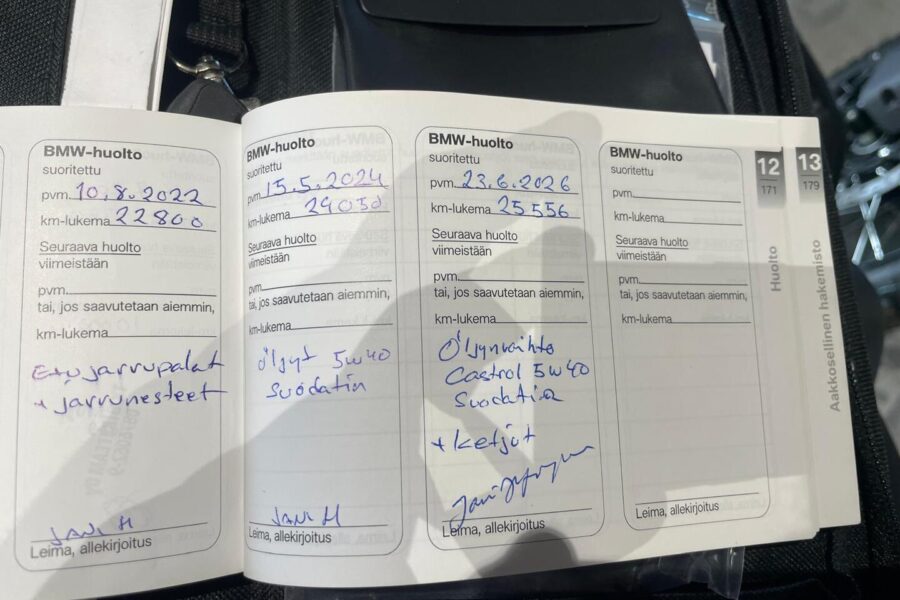 BMW-huolto
suoritettu
pvm. 10.8.2022
km-lukema 22800
Seuraava huolto
viimeistään
pvm.
tai, jos saavutetaan aiemmin,
km-lukema
Etujarrupalat
+ jarrunesteet
Jani H
Leima, allekirjoitus
BMW-huolto
suoritettu
pvm. 15.5.2024
km-lukema 24050
Seuraava huolto
viimeistään
pvm.
tai, jos saavutetaan aiemmin,
km-lukema
Öljyt 5w40
Suodatin
Jani H
Leima, allekirjoitus
BMW-huolto
suoritettu
pvm. 23.6.2026
km-lukema 25556
Seuraava huolto
viimeistään
pvm.
tai, jos saavutetaan aiemmin,
km-lukema
Öljynvaihto
Castrol 5w40
Suodatin
+ ketjut
Leima, allekirjoitus
BMW-huolto
suoritettu
pvm.
km-lukema
Seuraava huolto
viimeistään
pvm.
tai, jos saavutetaan aiemmin,
km-lukema
Leima, allekirjoitus
12
171
Huolto
13
179
Aakkosellinen hakemisto